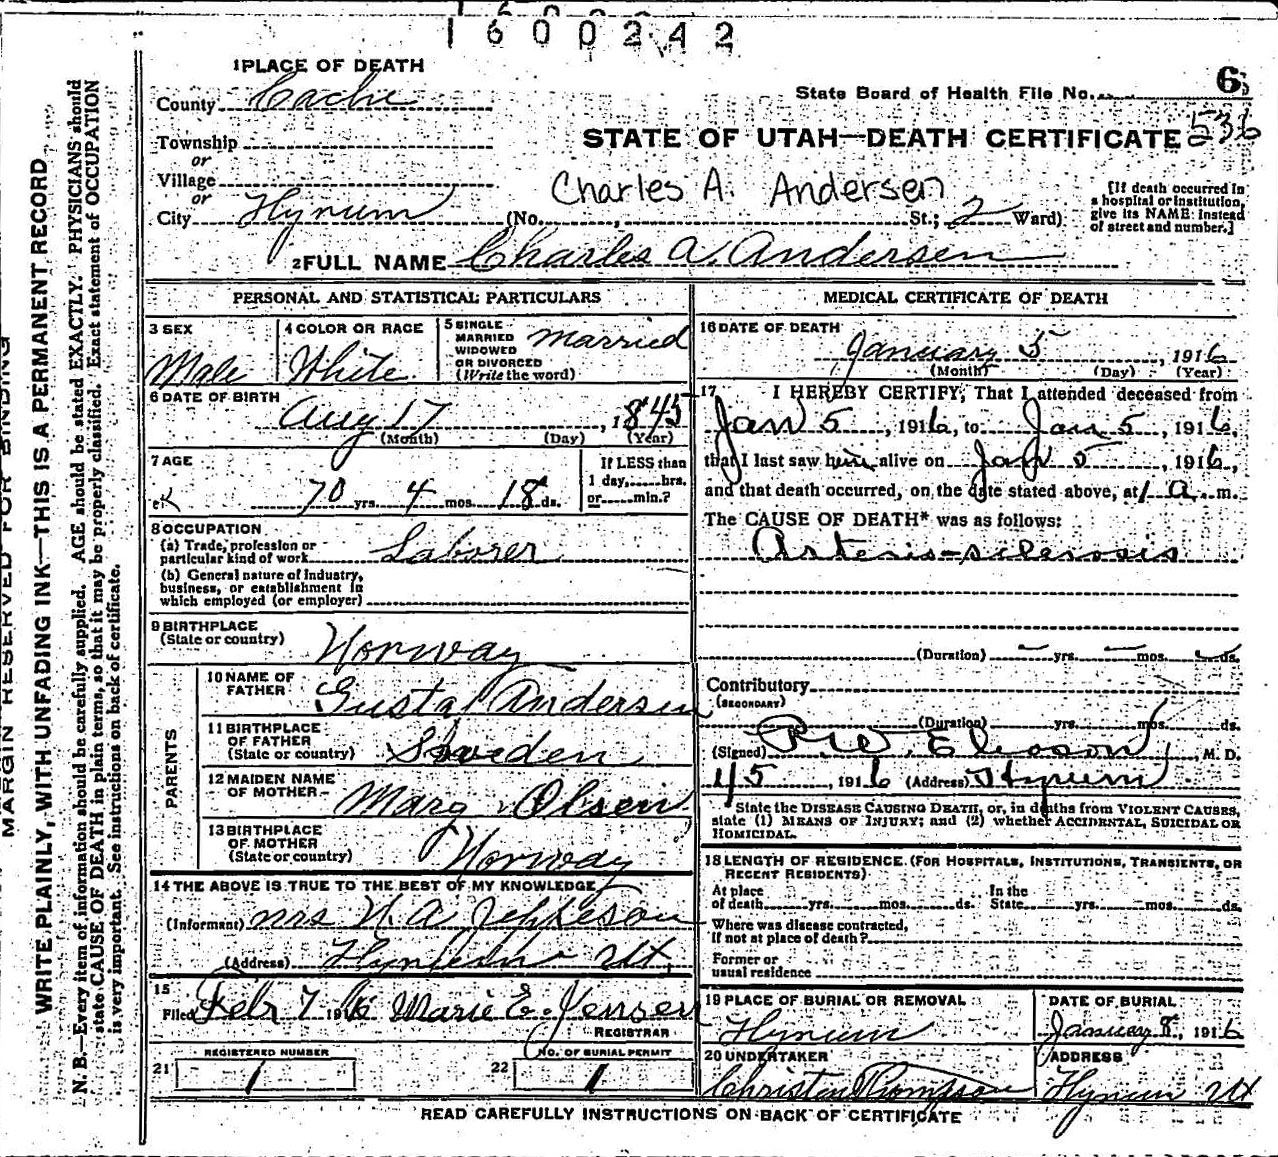 1600242
6
1 PLACE OF DEATH
County Cache
State Board of Health File No.
Township
or
STATE OF UTAH—DEATH CERTIFICATE 536
Village
or
Charles A. Andersen
City Hyrum (No. , St.; 2 Ward)
[If death occurred in a hospital or institution, give its NAME instead of street and number.]
2 FULL NAME Charles A. Andersen
PERSONAL AND STATISTICAL PARTICULARS
3 SEX Male
4 COLOR OR RACE White
5 SINGLE MARRIED WIDOWED OR DIVORCED (Write the word) married
6 DATE OF BIRTH Aug 17, 1845
(Month) (Day) (Year)
7 AGE 70 yrs. 4 mos. 18 ds.
If LESS than 1 day, hrs. or min.?
8 OCCUPATION
(a) Trade, profession or particular kind of work Laborer
(b) General nature of industry, business, or establishment in which employed (or employer)
9 BIRTHPLACE (State or country) Norway
PARENTS
10 NAME OF FATHER Gustaf Andersen
11 BIRTHPLACE OF FATHER (State or country) Sweden
12 MAIDEN NAME OF MOTHER Olsen
13 BIRTHPLACE OF MOTHER (State or country) Norway
14 THE ABOVE IS TRUE TO THE BEST OF MY KNOWLEDGE
(Informant) Mrs A
(Address) Ut.
15
Filed Feb 7 1916 Marie E. Jensen
REGISTRAR
21 REGISTERED NUMBER 1
22 NO. OF BURIAL PERMIT 1
MEDICAL CERTIFICATE OF DEATH
16 DATE OF DEATH
January 5, 1916
(Month) (Day) (Year)
17 I HEREBY CERTIFY, That I attended deceased from
Jan 5, 1916, to Jan 5, 1916,
that I last saw him alive on Jan 5, 1916,
and that death occurred, on the date stated above, at 1 a. m.
The CAUSE OF DEATH* was as follows:
Arterio-sclerosis
(Duration) yrs. mos. ds.
Contributory
(SECONDARY)
(Duration) yrs. mos. ds.
(Signed) , M. D.
1/5, 1916 (Address) Hyrum
State the DISEASE CAUSING DEATH, or, in deaths from VIOLENT CAUSES,
state (1) MEANS OF INJURY; and (2) whether ACCIDENTAL, SUICIDAL OR
HOMICIDAL.
18 LENGTH OF RESIDENCE (FOR HOSPITALS, INSTITUTIONS, TRANSIENTS, OR
RECENT RESIDENTS)
At place of death yrs. mos. ds. In the State yrs. mos. ds.
Where was disease contracted, If not at place of death?
Former or usual residence
19 PLACE OF BURIAL OR REMOVAL Hyrum
DATE OF BURIAL January 8, 1916
20 UNDERTAKER Christen Thompson
ADDRESS Hyrum Ut
READ CAREFULLY INSTRUCTIONS ON BACK OF CERTIFICATE
MARGIN RESERVED FOR BINDING
WRITE PLAINLY, WITH UNFADING INK—THIS IS A PERMANENT RECORD
N. B.—Every item of information should be carefully supplied. AGE should be stated EXACTLY. PHYSICIANS should
state CAUSE OF DEATH in plain terms, so that it may be properly classified. Exact statement of OCCUPATION
is very important. See instructions on back of certificate.